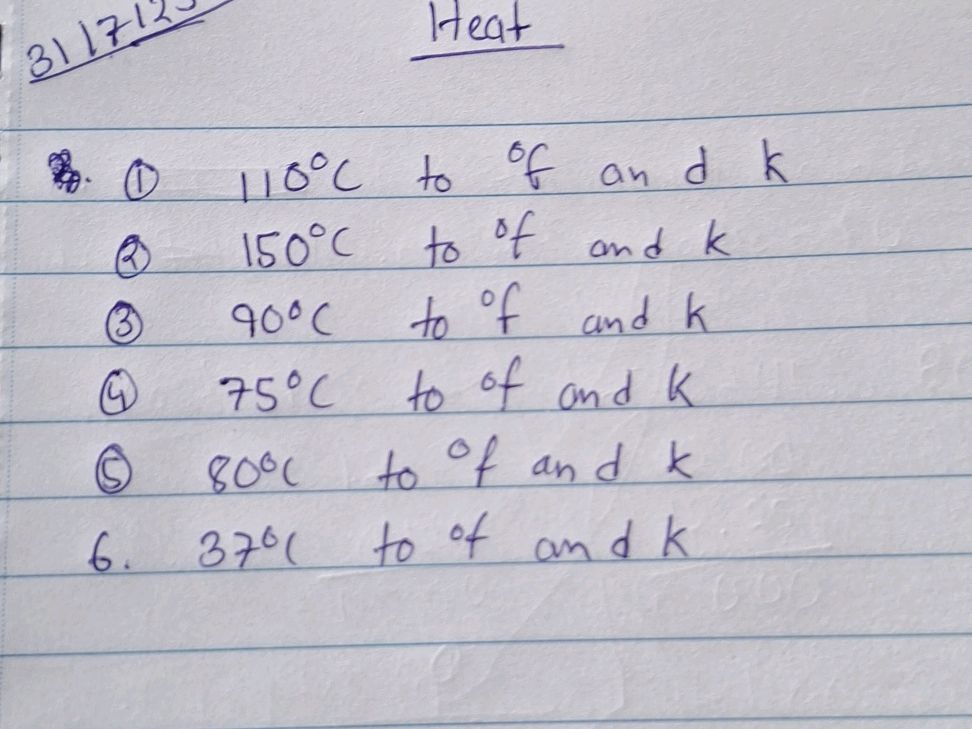 Heat
① 110°C to °f and k
② 150°C to °f and k
③ 90°C to °f and k
④ 75°C to °f and k
⑤ 80°C to °f and k
6. 37°C to °f and k